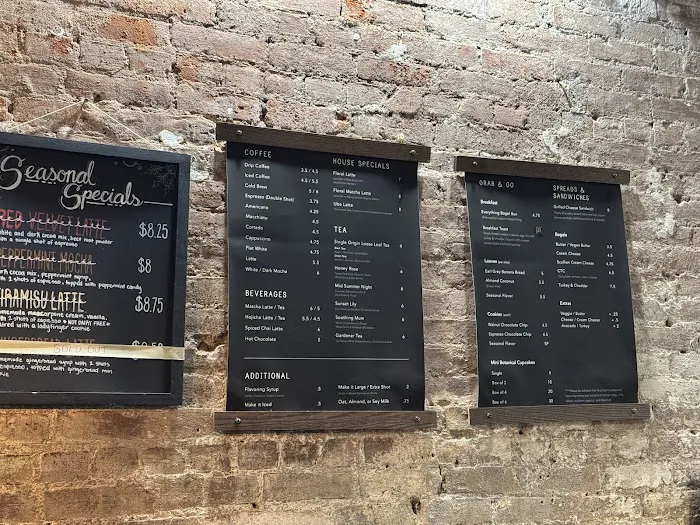 Seasonal
Specials
RED VELVET LATTE
$8.25
white and dark cocoa mix, beet root powder
with a single shot of espresso
PEPPERMINT MOCHA
$8
dark cocoa mix, peppermint syrup
with 2 shots of espresso, topped with peppermint candy
TIRAMISU LATTE
$8.75
homemade mascarpone cream, vanilla,
with 2 shots of espresso
paired with a ladyfinger cookie
homemade gingerbread syrup with 2 shots
espresso, topped with gingerbread man
COFFEE
Drip Coffee 3.5 / 4.5
Iced Coffee 4.5 / 5.5
Cold Brew 5 / 6
Espresso (Double Shot) 3.75
Americano 4.25
Macchiato 4.5
Cortado 4.5
Cappuccino 4.75
Flat White 4.75
Latte 5
White / Dark Mocha 5.5
BEVERAGES
Matcha Latte / Tea 6 / 5
Hojicha Latte / Tea 5.5 / 4.5
Spiced Chai Latte 5
Hot Chocolate 5
HOUSE SPECIALS
Floral Latte 7
Floral Matcha Latte 8
Ube Latte
TEA
Single Origin Loose Leaf Tea 5
Honey Rose 6
Mid Summer Night 6
Sunset Lily 6
Soothing Mum 6
Gardener Tea 6
ADDITIONAL
Flavoring Syrup .5
Make it Iced .5
Make it Large / Extra Shot 2
Oat, Almond, or Soy Milk .75
GRAB & GO
Breakfast
Everything Bagel Bun 4.75
Breakfast Toast
Loaves
Earl Grey Banana Bread 5
Almond Coconut 5.5
Seasonal Flavor 5.5
Cookies
Walnut Chocolate Chip 4.5
Espresso Chocolate Chip 4.5
Seasonal Flavor
Mini Botanical Cupcakes
Single 5
Box of 2 10
Box of 4 20
Box of 6 30
SPREADS &
SANDWICHES
Grilled Cheese Sandwich 8
Bagels
Butter / Vegan Butter 3.5
Cream Cheese 4.5
Scallion Cream Cheese 4.75
GTC 6.5
Turkey & Cheddar 7.5
Extras
Veggies / Butter + .25
Cheese / Cream Cheese
Avocado / Turkey + 2